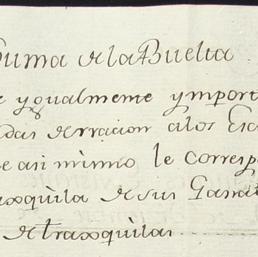 Suma de la Buelta
ygualmente ymport
das de rracion a los Esc
asi mismo le corresp
traxquila de sus Ganat
de traxquilas